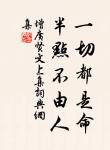 一切都是命
半點不由人
增廣賢文上集詞典網
集